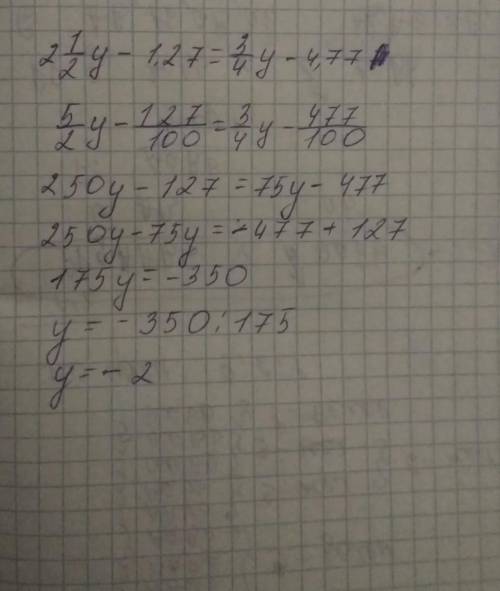 2 1/2 y - 1,27 = 3/4 y - 4,77
5/2 y - 127/100 = 3/4 y - 477/100
250y - 127 = 75y - 477
250y - 75y = -477 + 127
175y = -350
y = -350:175
y = -2